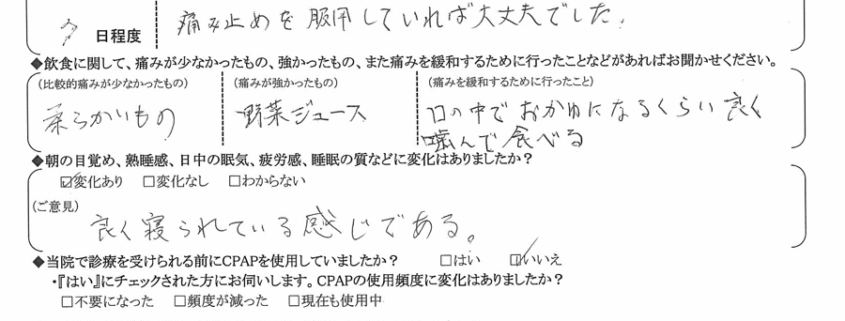 痛み止めを服用していれば大丈夫でした.
日程度
◆飲食に関して、痛みが少なかったもの、強かったもの、また痛みを緩和するために行ったことなどがあればお聞かせください。
(比較的痛みが少なかったもの) (痛みが強かったもの) (痛みを緩和するために行ったこと)
柔らかいもの 野菜ジュース 口の中でおかゆになるくらい良く
噛んで食べる
◆朝の目覚め、熟睡感、日中の眠気、疲労感、睡眠の質などに変化はありましたか?
☑変化あり □変化なし □わからない
(ご意見)
良く寝られている感じである。
◆当院で診療を受けられる前にCPAPを使用していましたか? □はい ☑いいえ
・『はい』にチェックされた方にお伺いします。CPAPの使用頻度に変化はありましたか?
□不要になった □頻度が減った □現在も使用中